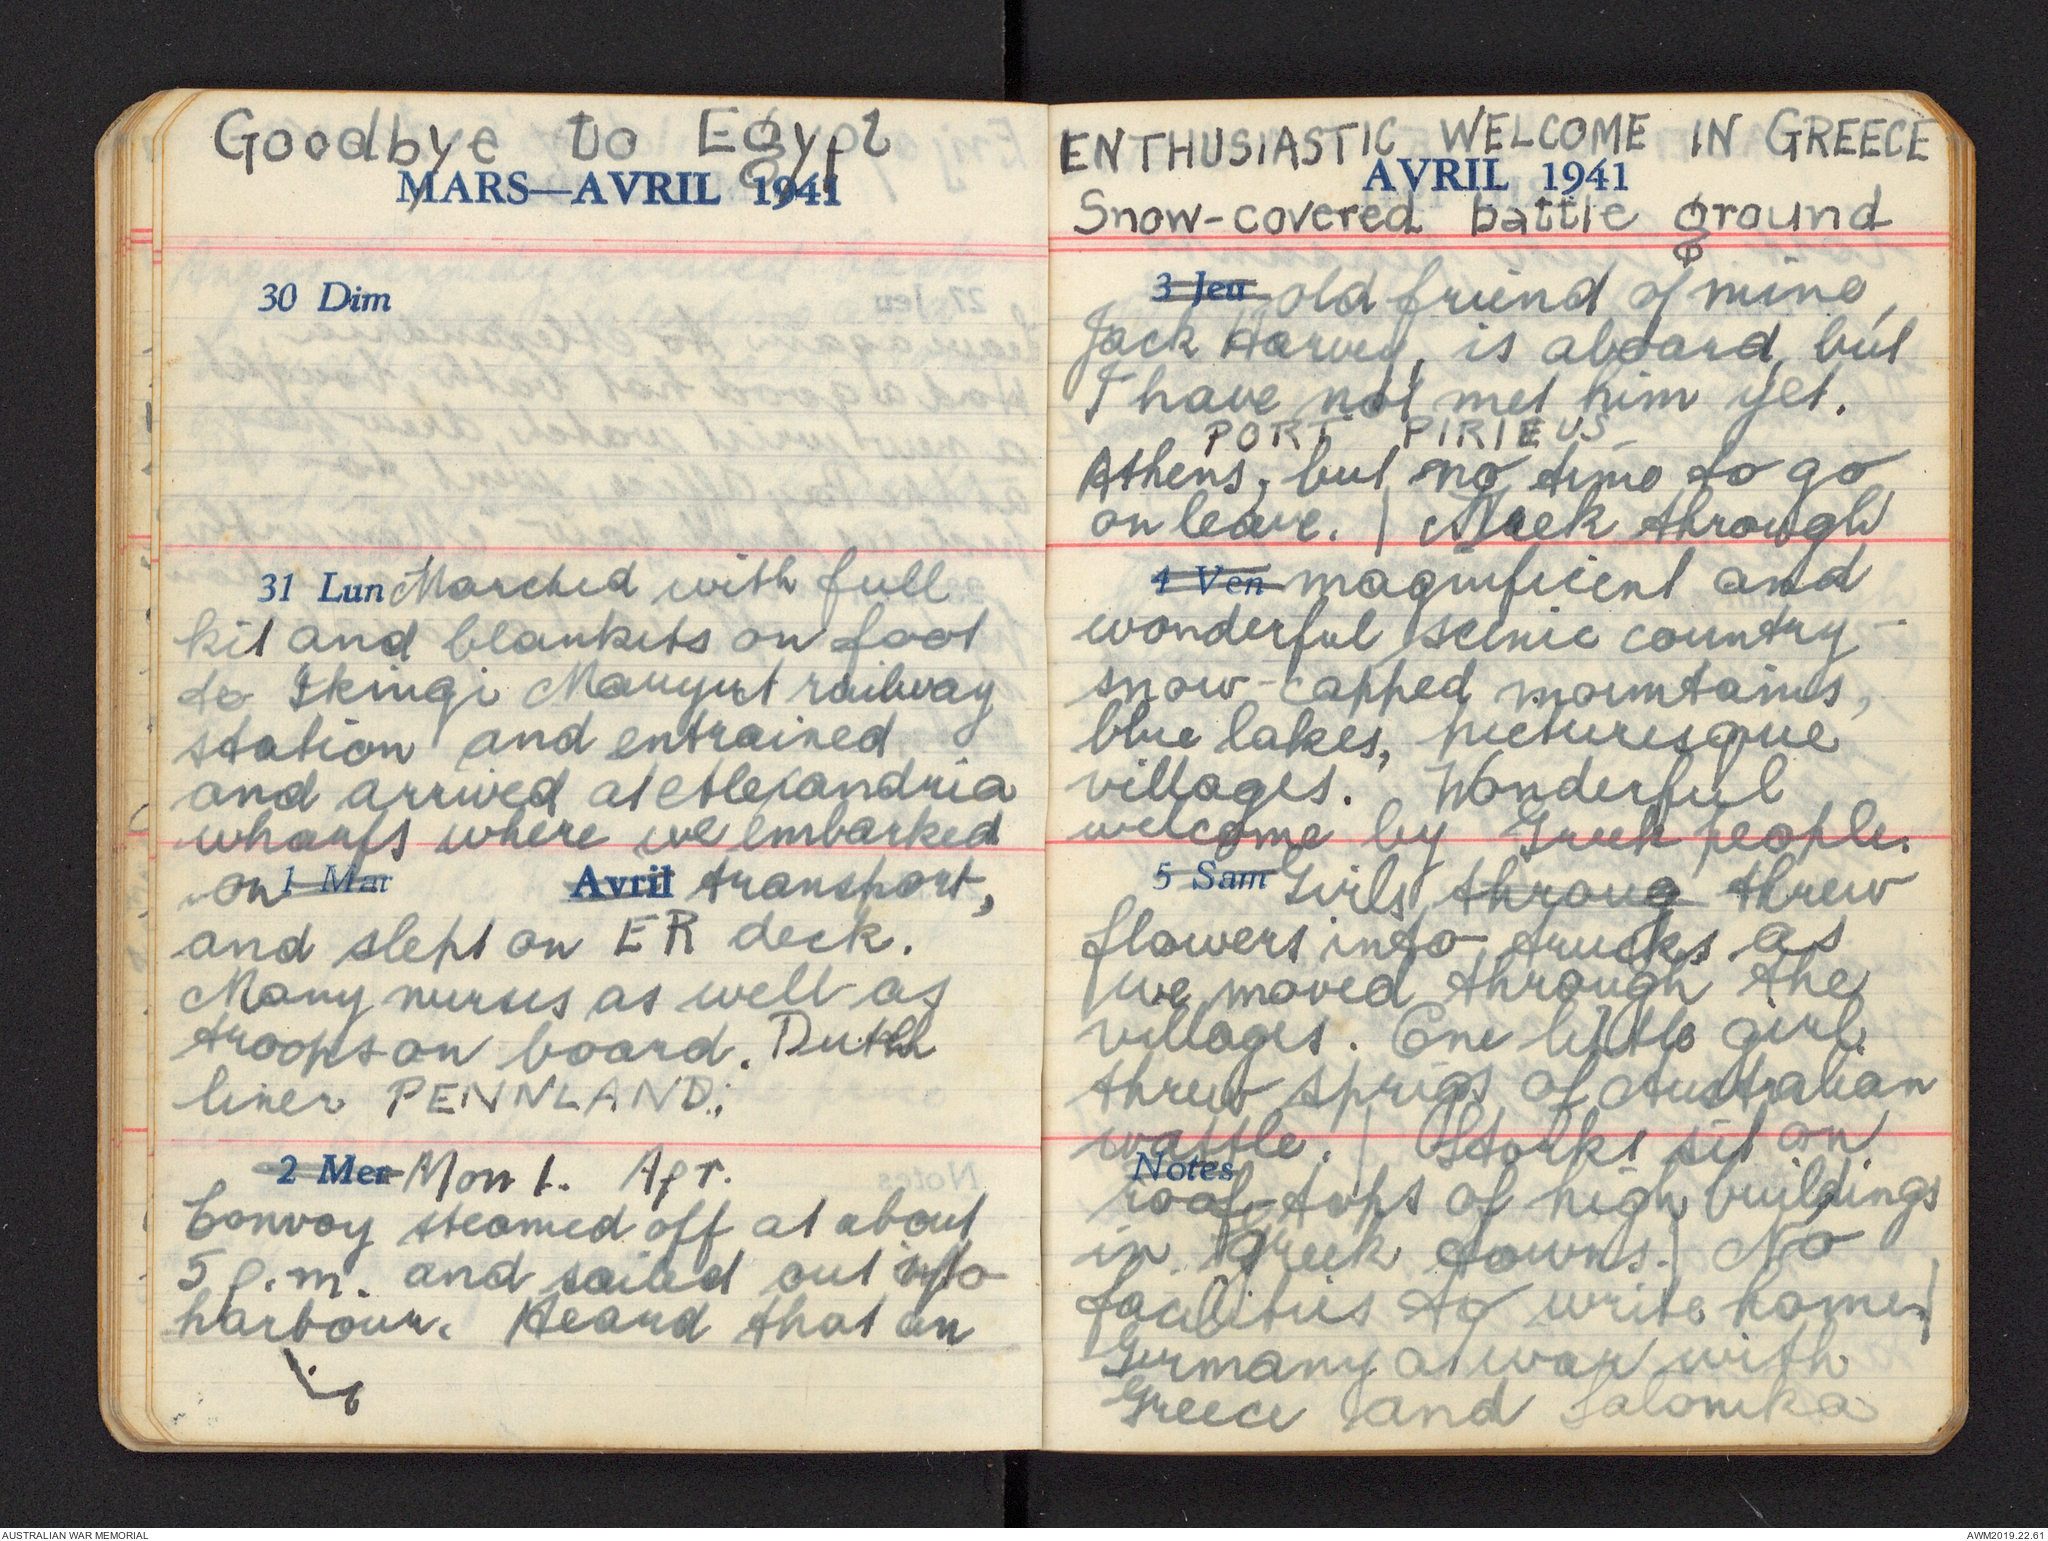 Goodbye to Egypt
MARS—AVRIL 1941
30 Dim
31 Lun Marched with full
kit and blankets on foot
to Ikingi Maryut railway
station and entrained
and arrived at Alexandria
wharfs where we embarked
on 1 Mar Avril transport,
and slept on ER deck.
Many nurses as well as
troops on board. Dutch
liner PENNLAND.
2 Mer Mon 1. Apr.
Convoy steamed off at about
5 p.m. and sailed out into
harbour. Heard that an
ENTHUSIASTIC WELCOME IN GREECE
AVRIL 1941
Snow-covered battle ground
3 Jeu old friend of mine,
Jack Harvey, is aboard, but
I have not met him yet.
PORT PIRIEUS
Athens, but no time to go
on leave. | Trek through
4 Ven magnificent and
wonderful scenic country -
snow-capped mountains,
blue lakes, picturesque
villages. Wonderful
welcome by Greek people.
5 Sam Girls throug threw
flowers into trucks as
we moved through the
villages. One little girl
threw sprigs of Australian
wattle. | Storks sit on
Notes
roof-tops of high buildings
in Greek towns. | No
facilities to write home. |
Germany at war with
Greece and Salonika
AUSTRALIAN WAR MEMORIAL
AWM2019.22.61